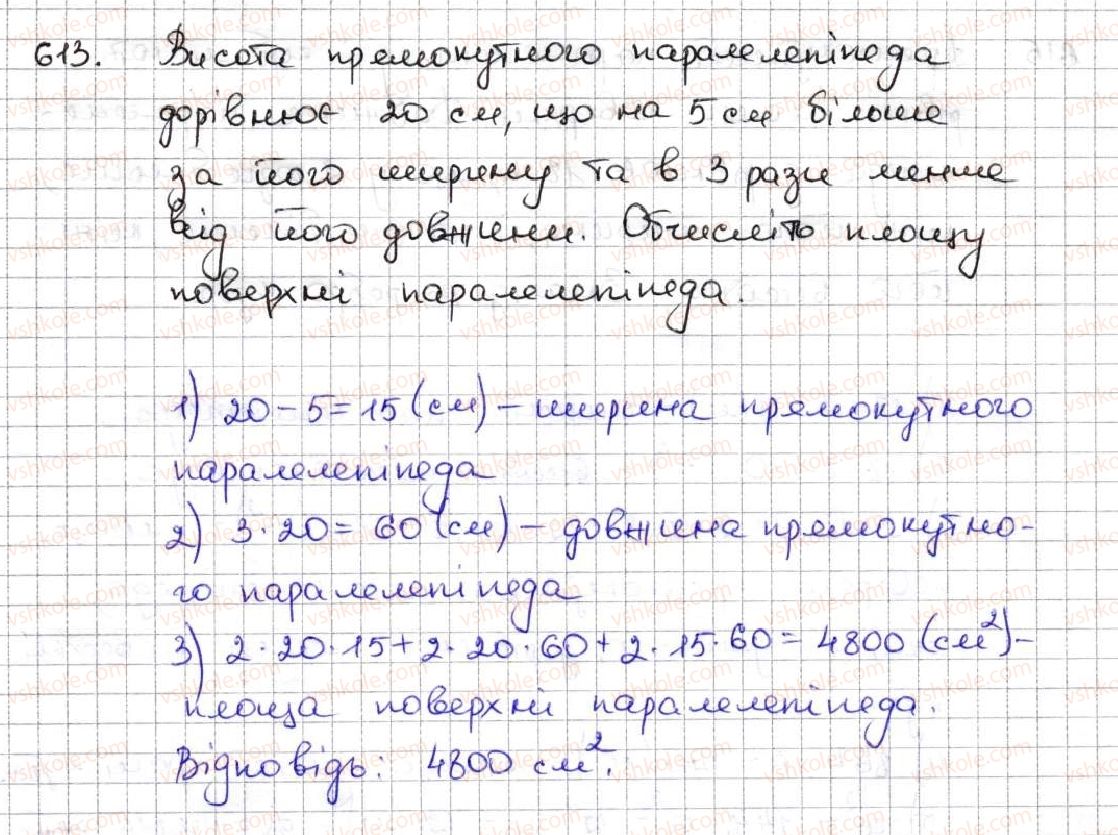 613. Висота прямокутного паралелепіпеда
дорівнює 20 см, що на 5 см більше
за його ширину та в 3 рази менше
від його довжини. Обчисліть площу
поверхні паралелепіпеда.
1) 20 - 5 = 15 (см) - ширина прямокутного
паралелепіпеда
2) 3 · 20 = 60 (см) - довжина прямокутно-
го паралелепіпеда
3) 2 · 20 · 15 + 2 · 20 · 60 + 2 · 15 · 60 = 4800 (см²) -
площа поверхні паралелепіпеда.
Відповідь: 4800 см².